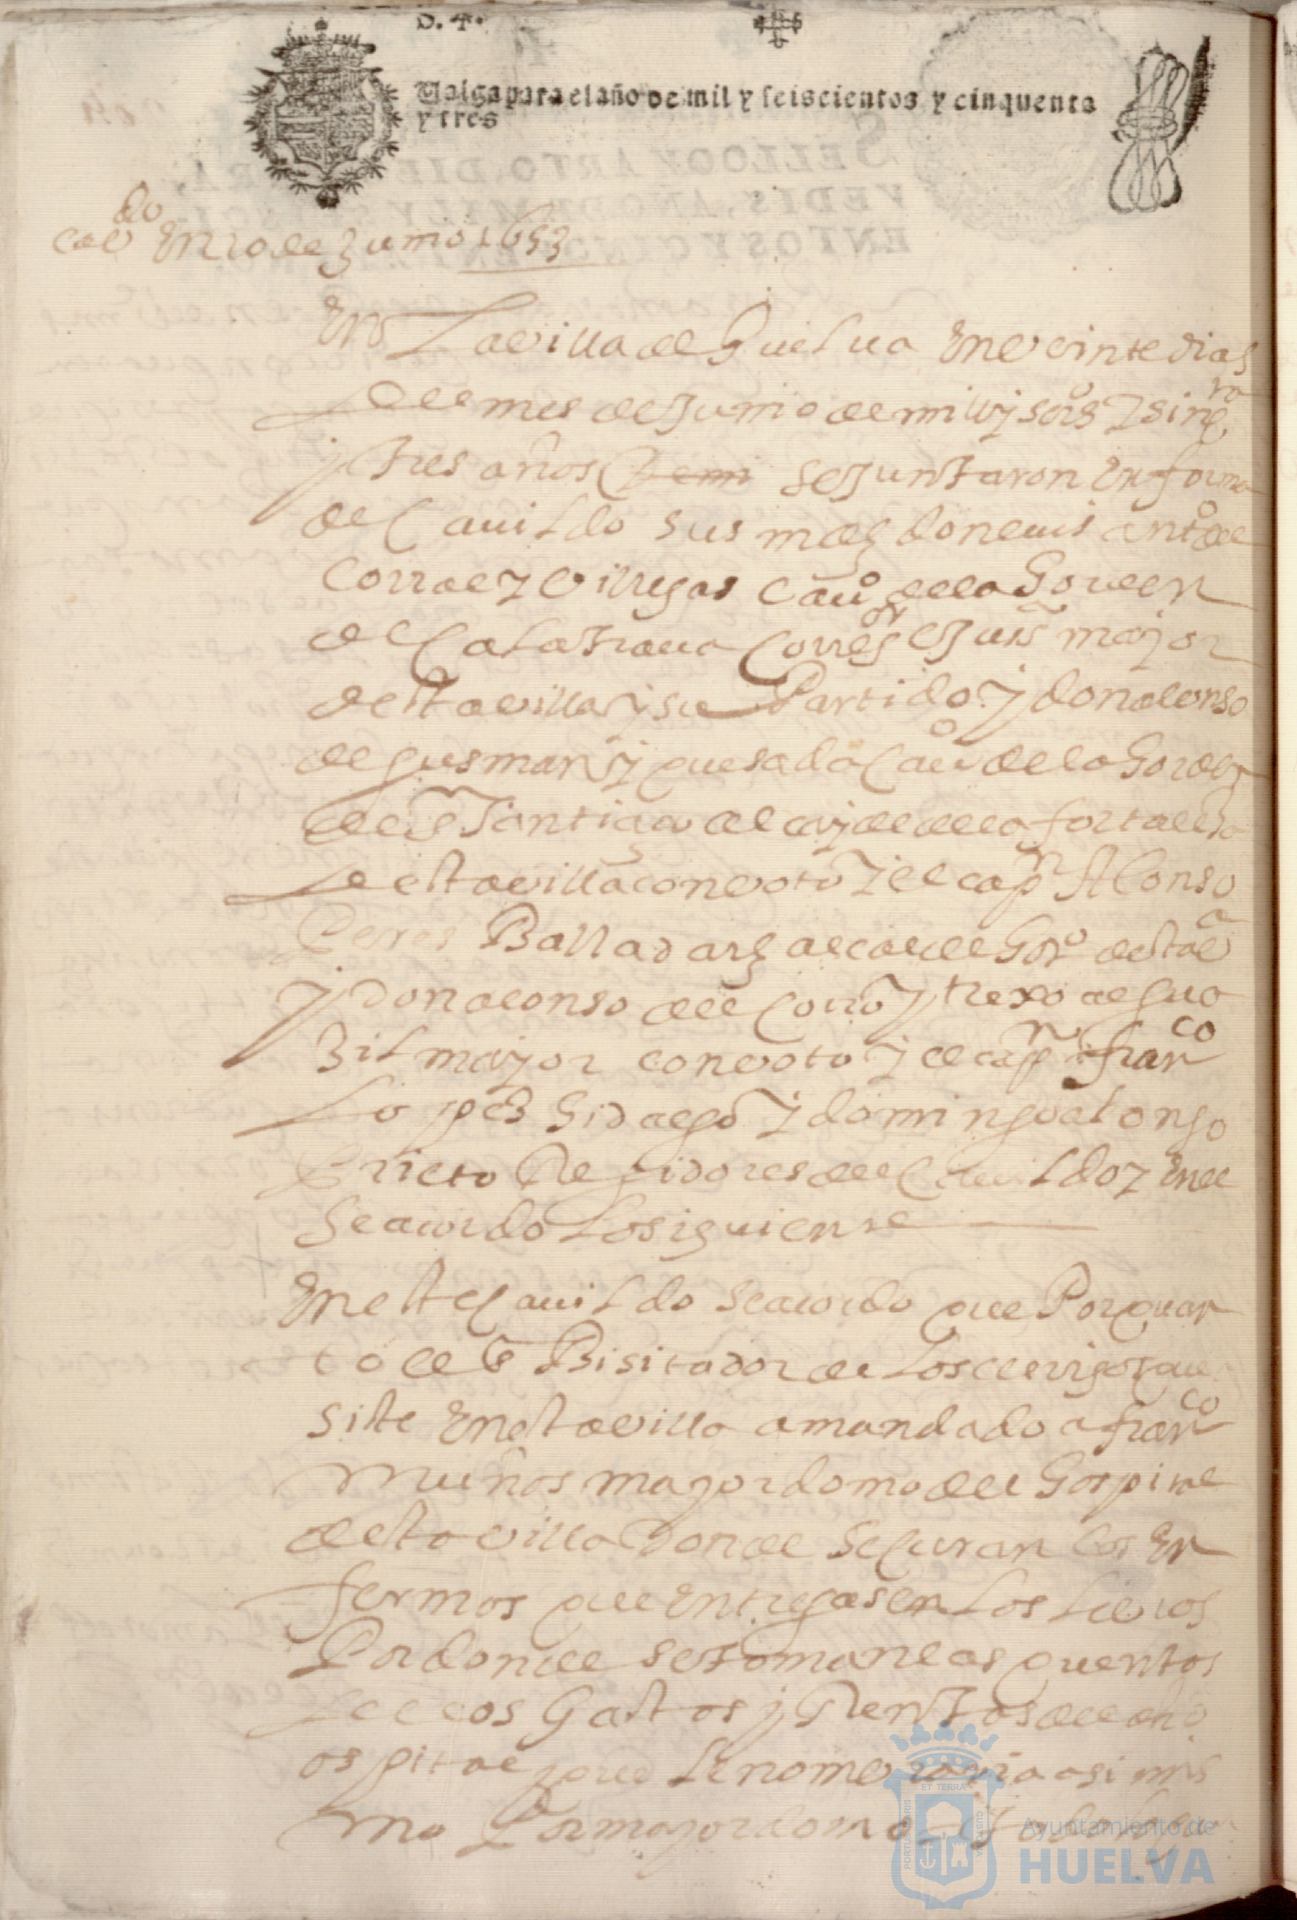 Valga para el año de mil y seiscientos y cinquenta
y tres
cavdo En 20 de Junio 1653
En La villa de Guelua En veinte dias
del mes de Junio de mill y sos y sinqta
y tres años se Juntaron En forma
de Cauildo sus mds don luis anto de
Corral y Villegas Cauo de la Gorden
de CalaTraua Corregor y Jusa major
desta villa y su Partido y don alonso
de gusman y quesada Cauo de la Gorden
de sr Santiago alcayde de la fortalesa
de esta villa con voto y el capn Alonso
Peres Balladars alcalde Gordo desta va
y don alonso del Corro y trexo algua
zil mayor con voto y el capn franco
Lopes Hidalgo y domingo alonso
Prieto Regidores del Cauildo y En el
se acordo Lo siguiente
En este Cauildo se acordo que Por quan
to el sr Bisitador de Los clerigos que
siste En esta villa a mandado a franco
muños mayordomo del Gospital
desta villa donde se Curan los En
fermos que Entregase Los Libros
Por donde se toman las quentas
de los Gastos y Rentas del dho
ospital que se nombraria asi mis
mo Por mayordomo
Ayuntamiento de
HUELVA